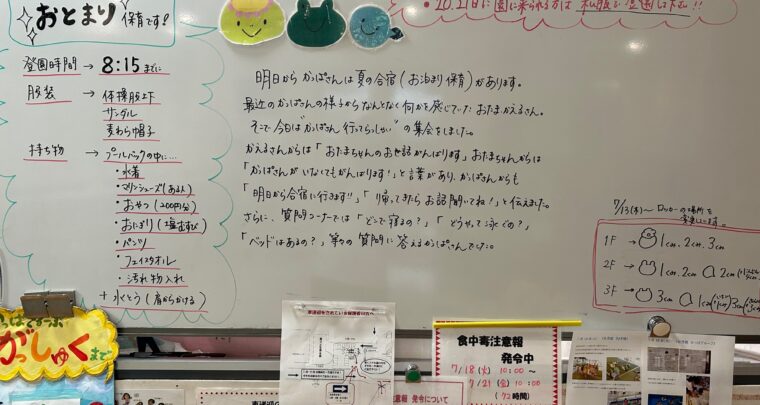 おとまり 保育です!
登園時間 → 8:15 までに
服装 → 体操服上下
サンダル
麦わら帽子
持ち物 → プールバックの中に…
・水着
・マリンシューズ(ある人)
・おやつ(200円分)
・おにぎり(塩むすび)
・パンツ
・フェイスタオル
・汚れ物入れ
+ 水とう(肩からかける)
• 20.21日に園に来られる方は 私服で登園して下さい!!
明日から かっぱさんは夏の合宿(お泊まり保育)があります。
最近のかっぱさんの様子からなんとなく何かを感じていたおたまかえるさん。
そこで今日は"かっぱさん 行ってらっしゃい"の集会をしました。
かえるさんからは「おたまちゃんのお世話がんばります」おたまちゃんからは
「かっぱさんがいなくてもがんばります!」と言葉があり、かっぱさんからも
「明日から合宿に行きます!」「帰ってきたらお話聞いてね!」と伝えました。
さらに、質問コーナーでは「どこで寝るの?」「どうやって泳ぐの?」
「ベッドはあるの?」等々の質問に答えるかっぱさんでした。
7/13(木)~ ロッカーの場所を
変更しています。
1F → 1cm. 2cm. 3cm
2F → 1cm. 2cm 2cm
3F → 3cm 1cm 3cm
がっしゅく まで
食中毒注意報
発令中
7/18(火) 10:00~
7/21(金) 10:00
(72時間)
注意報 発令について